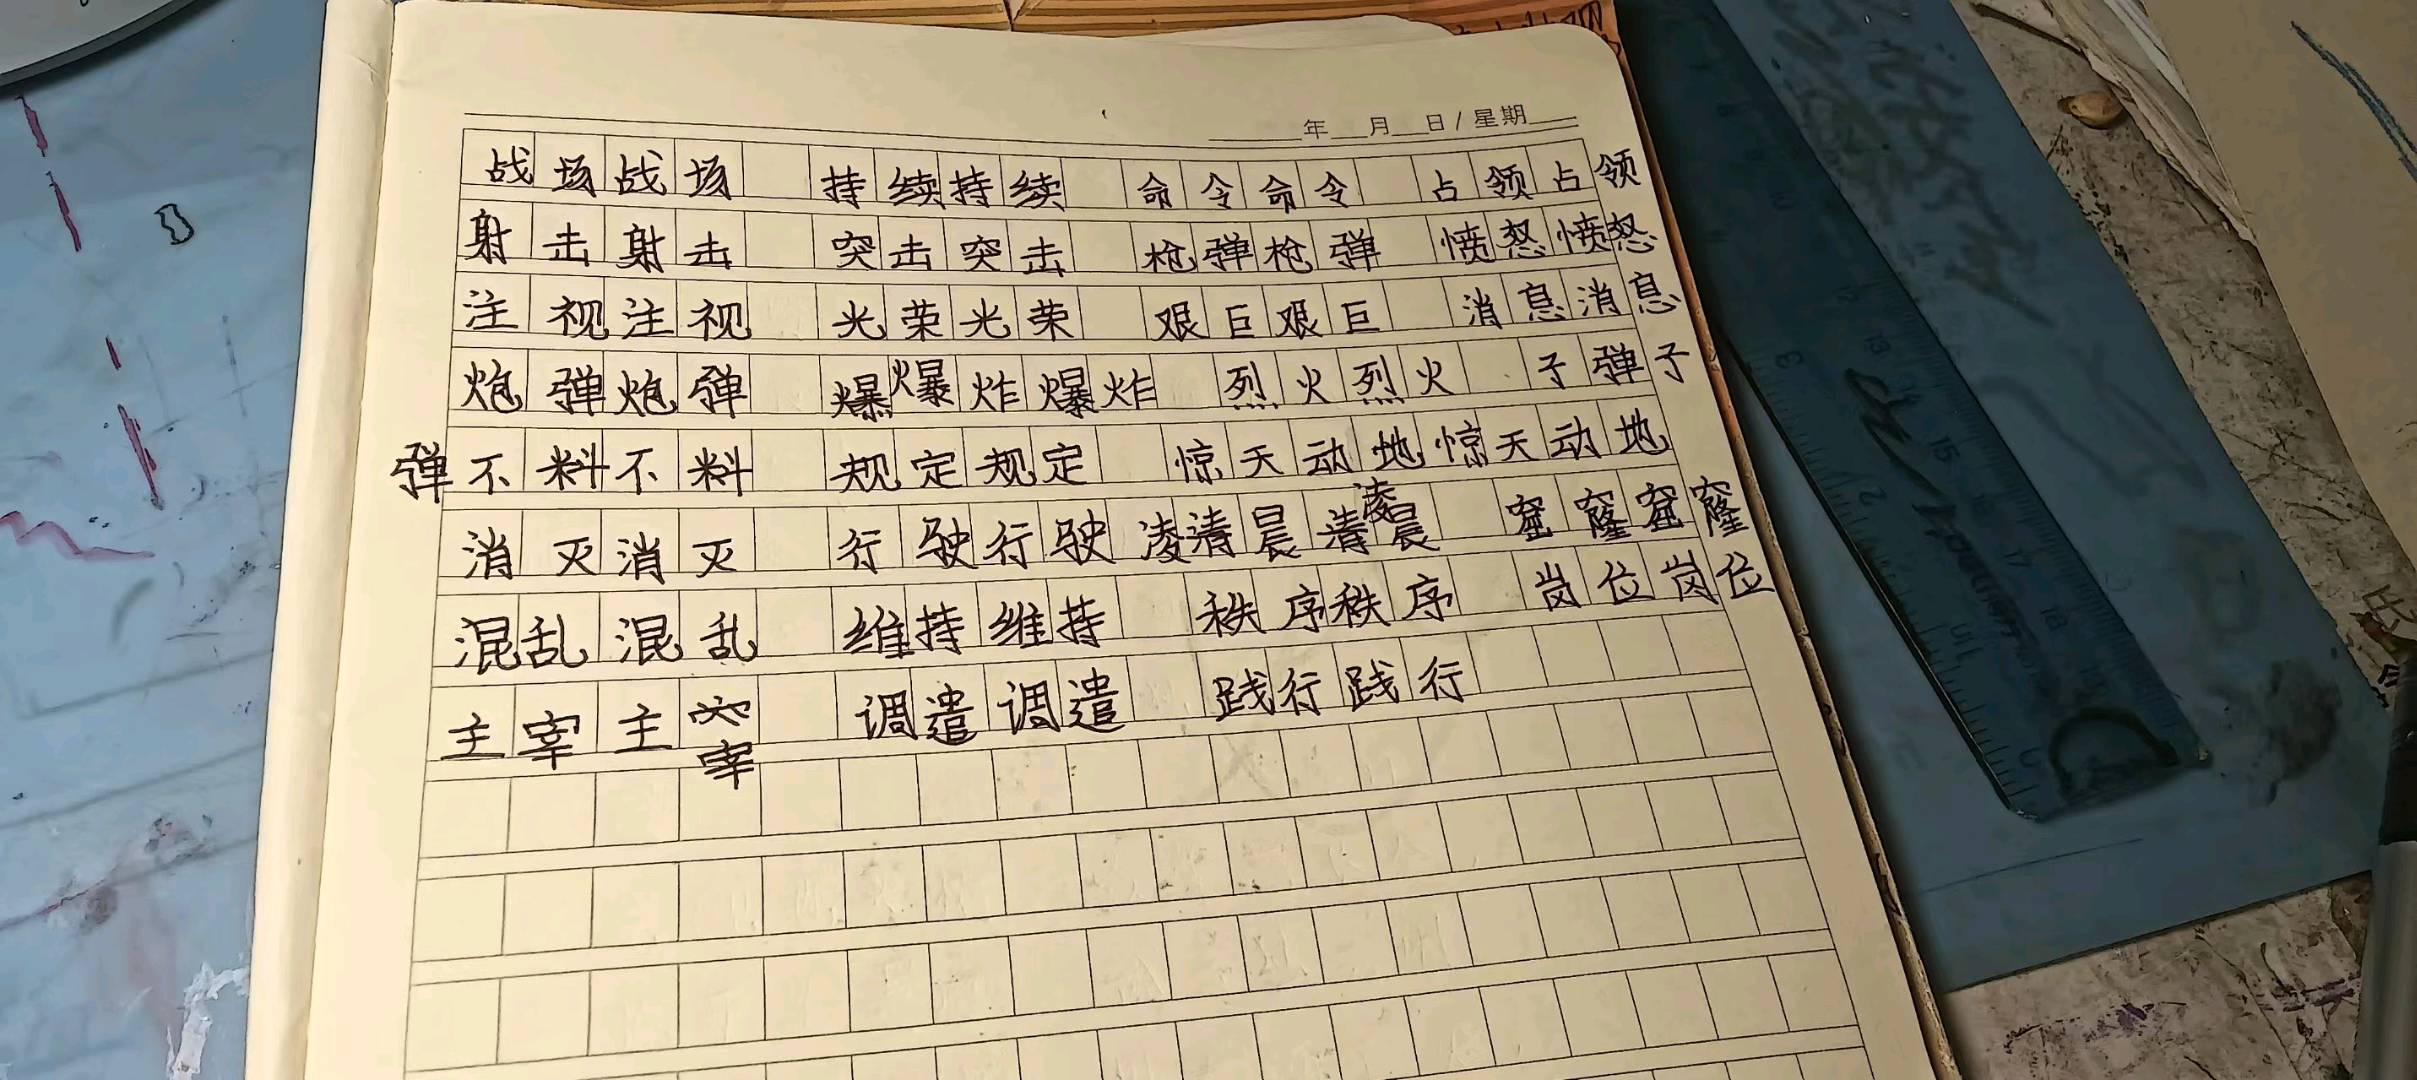 年 月 日/星期
战场战场 持续持续 命令命令 占领占领
射击射击 突击突击 枪弹枪弹 愤怒愤怒
注视注视 光荣光荣 艰巨艰巨 消息消息
炮弹炮弹 爆爆炸爆炸 烈火烈火 子弹子
弹不料不料 规定规定 惊天动地惊天动地
消灭消灭 行驶行驶 凌清晨清凌晨 窟窿窟窿
混乱混乱 维持维持 秩序秩序 岗位岗位
主宰主 调遣调遣 践行践行
宰